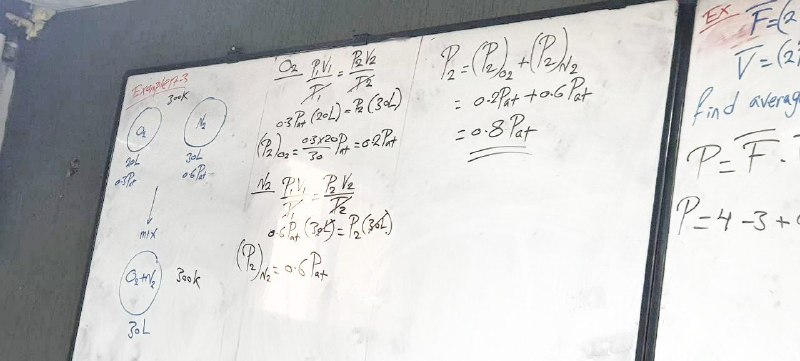 Example 2-3
300K
O₂
N₂
20L
30L
0.3Pat
0.6Pat
mix
O₂+N₂
300K
30L
O₂ P₁V₁/T₁ = P₂V₂/T₂
0.3Pat (20L) = P₂ (30L)
(P₂)O₂ = 0.3x20/30 Pat = 0.2Pat
N₂ P₁V₁/T₁ = P₂V₂/T₂
0.6Pat (30L) = P₂ (30L)
(P₂)N₂ = 0.6Pat
P₂ = (P₂)O₂ + (P₂)N₂
= 0.2Pat + 0.6Pat
= 0.8Pat
EX F = (2
V = (2
find average
P = F .
P = 4 - 3 +